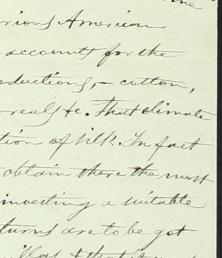 rious American
accounts for the
oductions,- cotton,
reals &c. That climate
tion of silk. In fact
obtain there the most
investing a suitable
turns are to be got